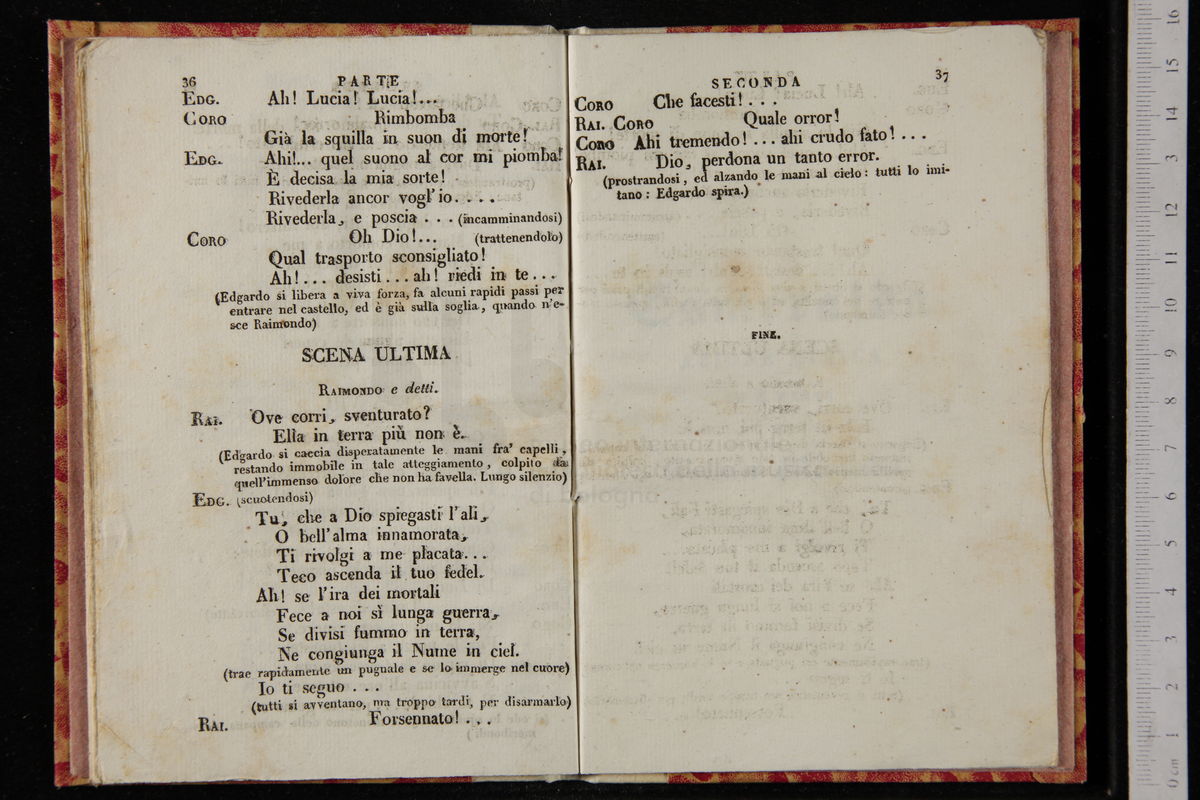 36
PARTE
EDG. Ah! Lucia! Lucia!...
CORO Rimbomba
Già la squilla in suon di morte!
EDG. Ahi!... quel suono al cor mi piomba!
È decisa la mia sorte!
Rivederla ancor vogl'io....
Rivederla, e poscia . . . (incamminandosi)
CORO Oh Dio!... (trattenendolo)
Qual trasporto sconsigliato!
Ah!... desisti... ah! riedi in te...
(Edgardo si libera a viva forza, fa alcuni rapidi passi per
entrare nel castello, ed è già sulla soglia, quando n'e-
sce Raimondo)
SCENA ULTIMA
RAIMONDO e detti.
RAI. Ove corri, sventurato?
Ella in terra più non è.
(Edgardo si caccia disperatamente le mani fra' capelli,
restando immobile in tale atteggiamento, colpito da
quell'immenso dolore che non ha favella. Lungo silenzio)
EDG. (scuotendosi)
Tu, che a Dio spiegasti l'ali,
O bell'alma innamorata,
Ti rivolgi a me placata...
Teco ascenda il tuo fedel.
Ah! se l'ira dei mortali
Fece a noi sì lunga guerra,
Se divisi fummo in terra,
Ne congiunga il Nume in ciel.
(trae rapidamente un pugnale e se lo immerge nel cuore)
Io ti seguo . . .
(tutti si avventano, ma troppo tardi, per disarmarlo)
RAI. Forsennato! . . .
SECONDA
37
CORO Che facesti! . . .
RAI. CORO Quale orror!
CORO Ahi tremendo! ... ahi crudo fato! ...
RAI. Dio, perdona un tanto error.
(prostrandosi, ed alzando le mani al cielo: tutti lo imi-
tano: Edgardo spira.)
FINE.
di Bologna
0 cm 1 2 3 4 5 6 7 8 9 10 11 12 13 14 15 16